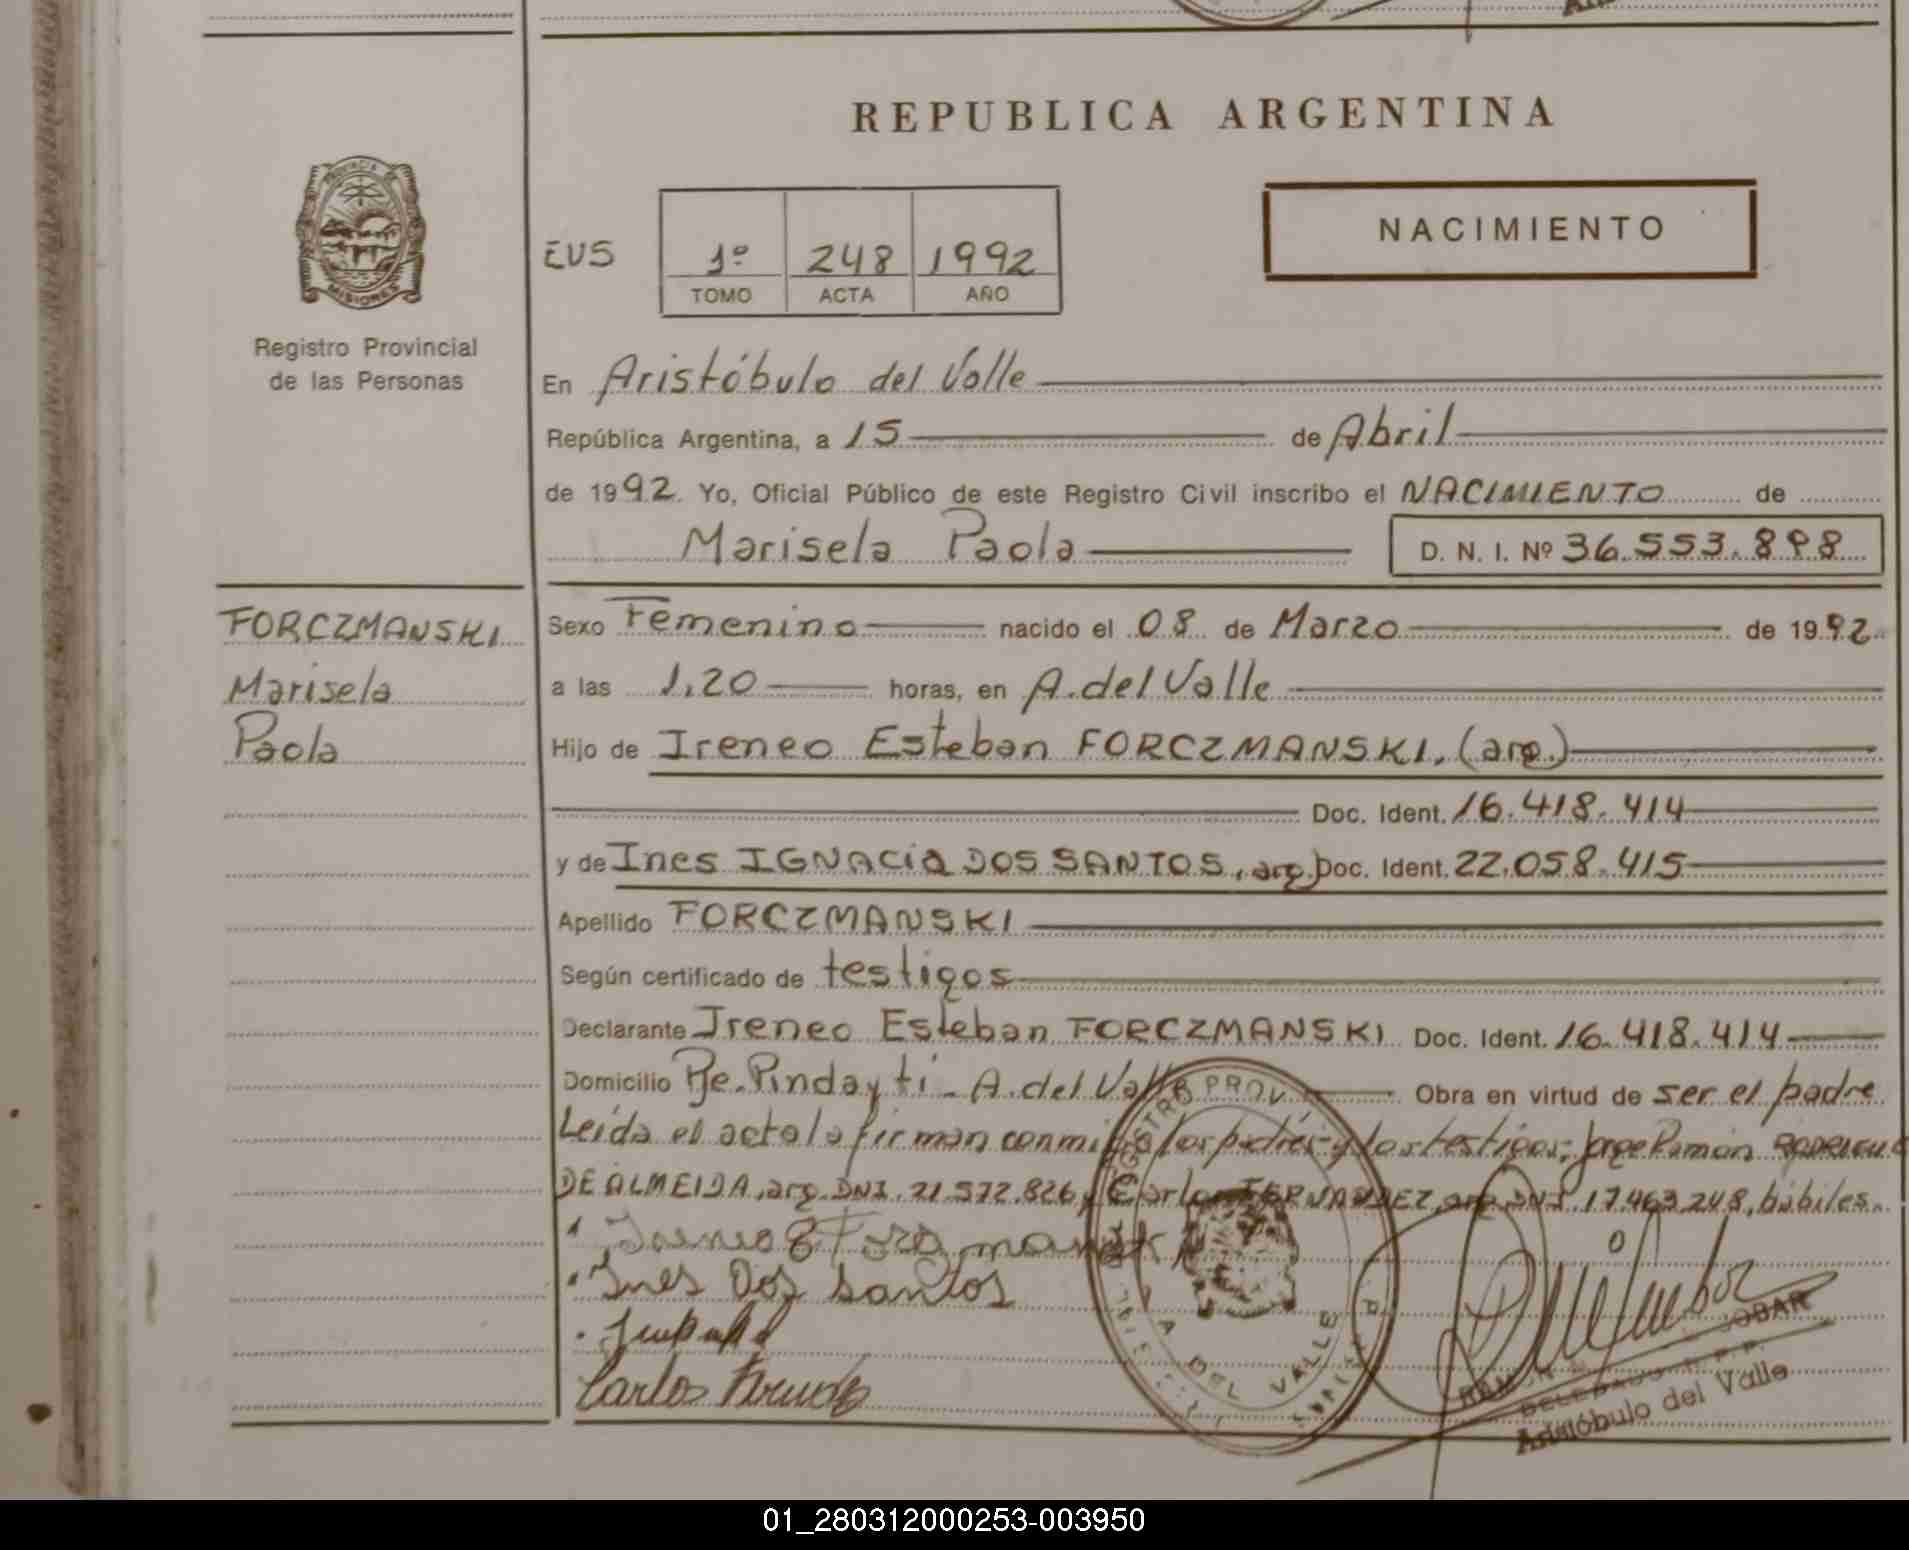 REPUBLICA ARGENTINA
PROVINCIA DE
MISIONES
Registro Provincial
de las Personas
EUS
1º 248 1992
TOMO ACTA AÑO
NACIMIENTO
En Aristóbulo del Valle
República Argentina, a 15 de Abril
de 1992. Yo, Oficial Público de este Registro Civil inscribo el NACIMIENTO de
Marisela Paola D. N. I. Nº 36.553.898
FORCZMANSKI
Marisela
Paola
Sexo Femenino nacido el 08 de Marzo de 1992
a las 1,20 horas, en A. del Valle
Hijo de Ireneo Esteban FORCZMANSKI, (arg.)
Doc. Ident. 16.418.414
y de Ines IGNACIA DOS SANTOS, arg. Doc. Ident. 22.058.415
Apellido FORCZMANSKI
Según certificado de testigos
Declarante Ireneo Esteban FORCZMANSKI Doc. Ident. 16.418.414
Domicilio Pje. Pindaytí - A. del Valle Obra en virtud de ser el padre
Leída el acta la firman conmigo los padres y los testigos: Jorge Ramón
DE ALMEIDA, arg. DNI. 21.572.826 y Carlos FERNANDEZ, arg. DNI. 17.463.248, hábiles.
Ines Dos Santos
Carlos
A DEL VALLE
Aristóbulo del Valle
01_280312000253-003950